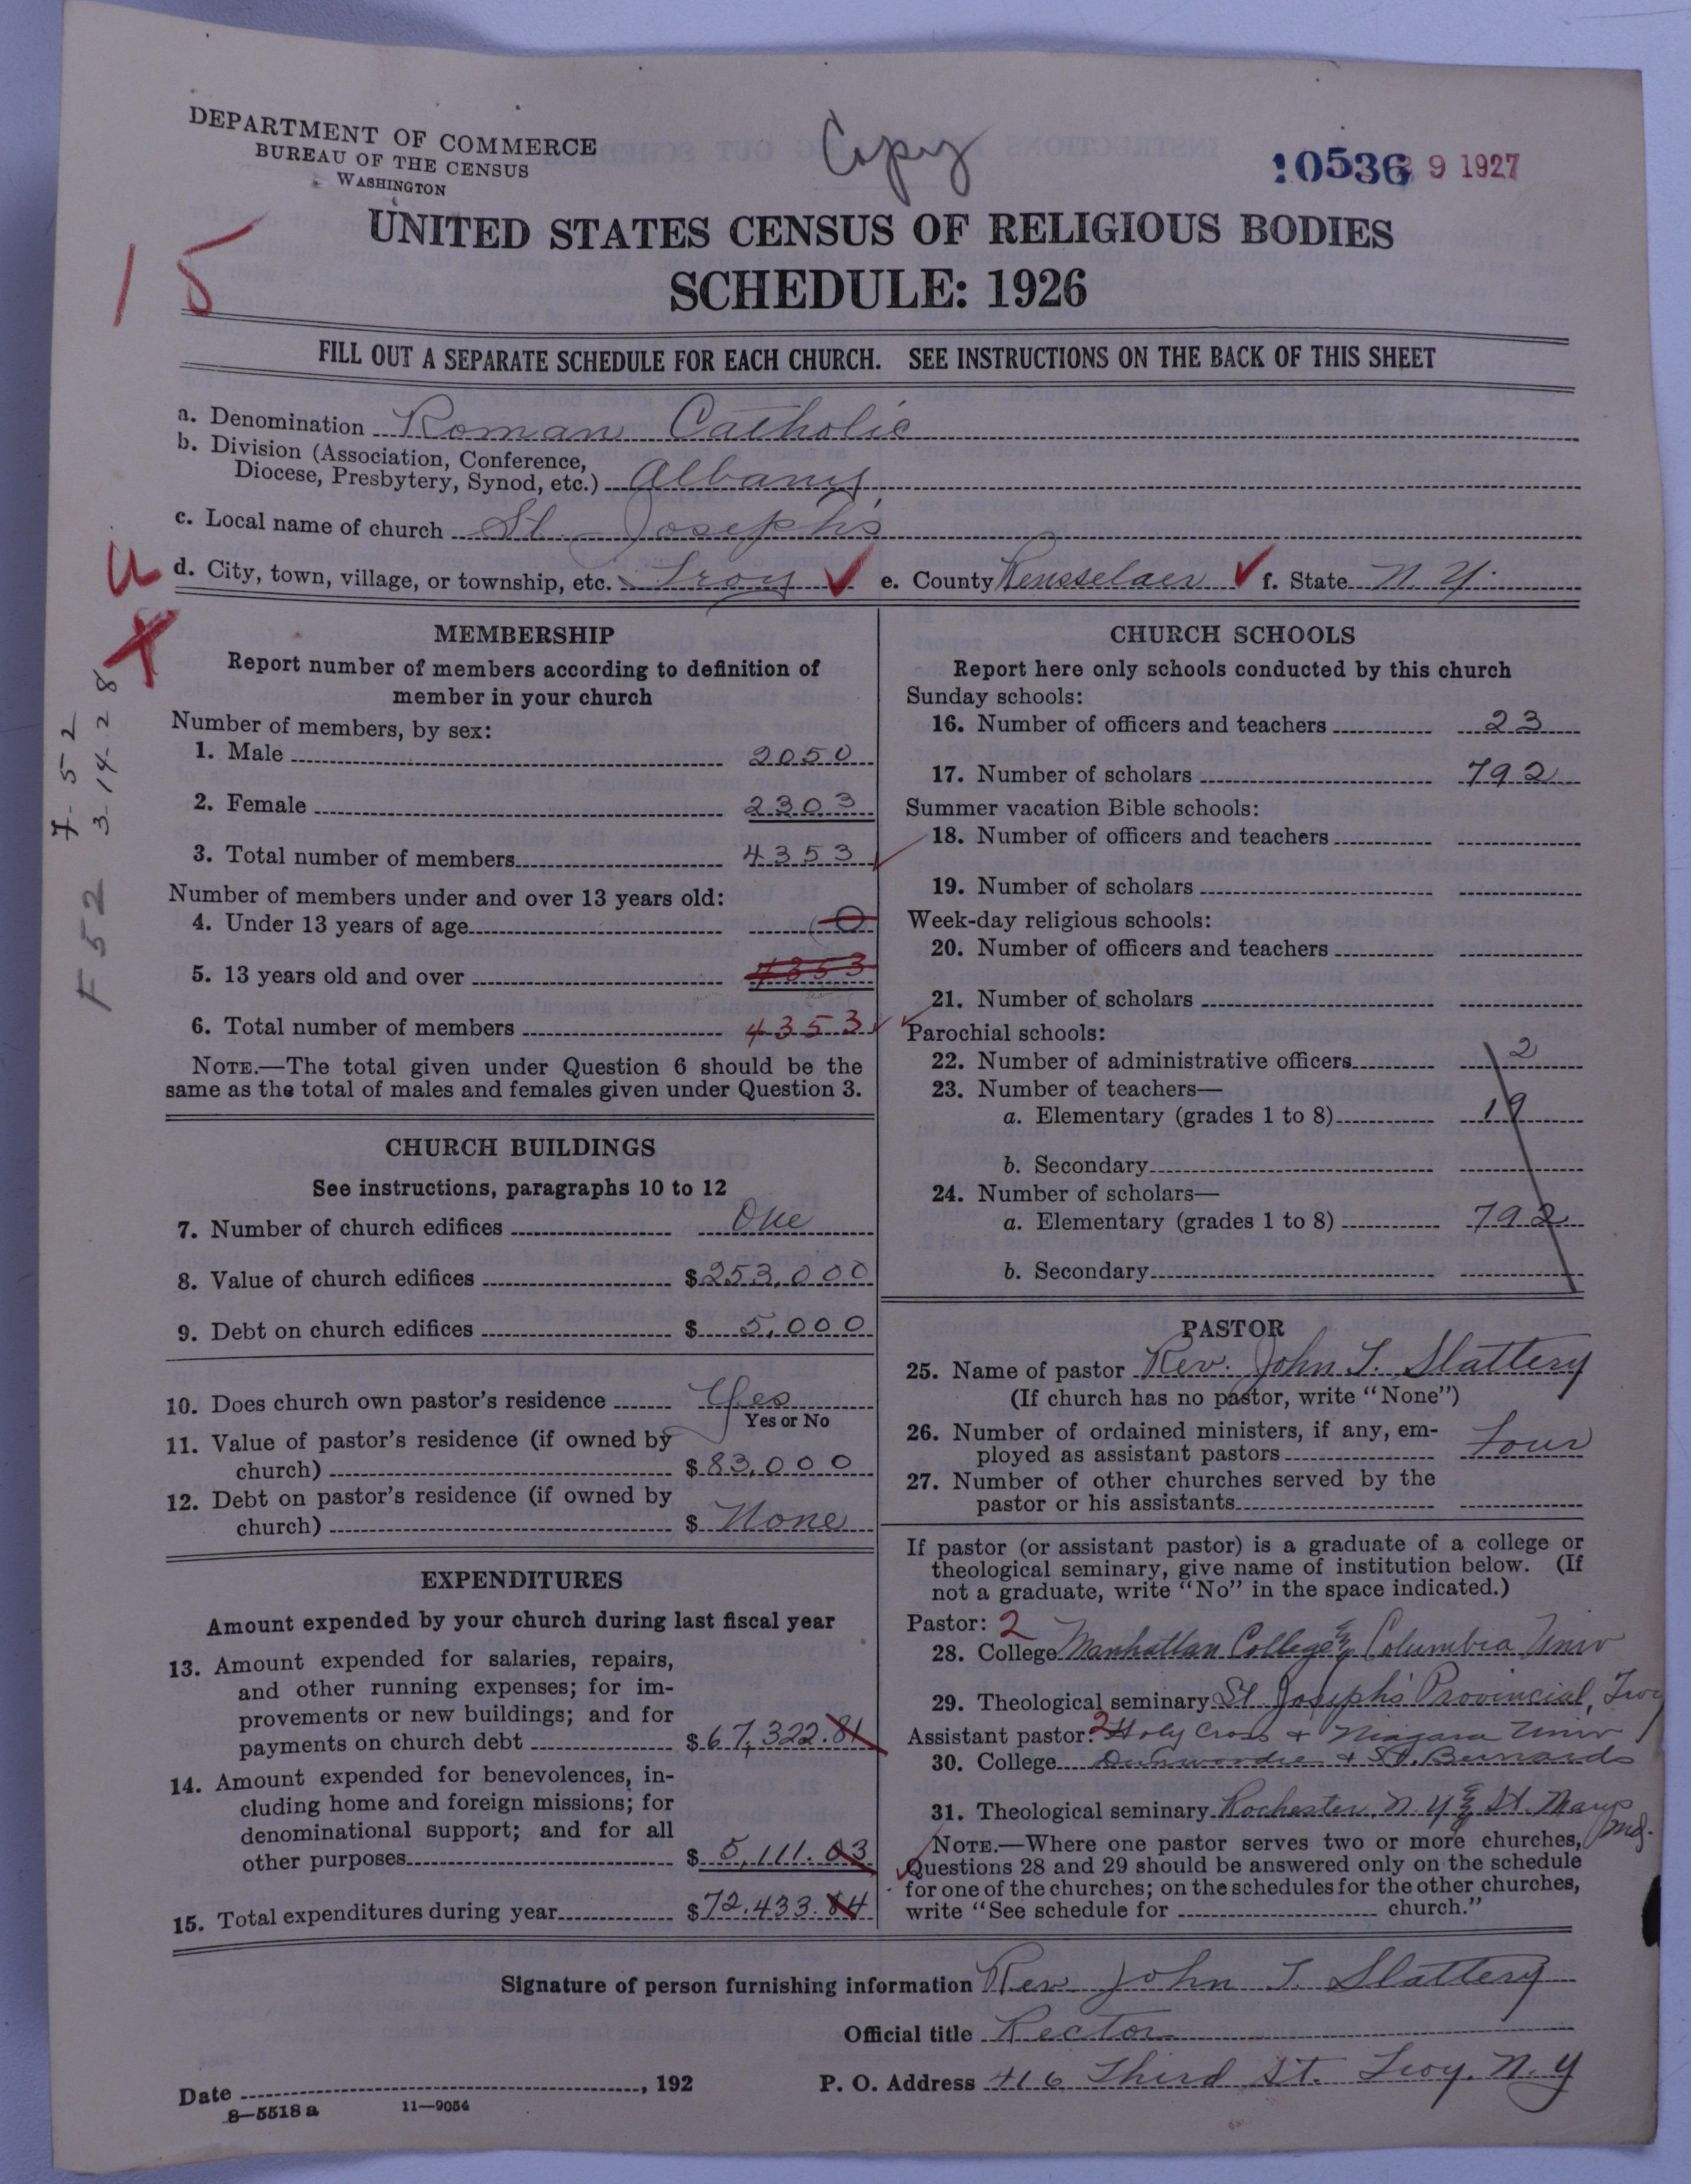 DEPARTMENT OF COMMERCE
BUREAU OF THE CENSUS
WASHINGTON
Copy
10536 9 1927
UNITED STATES CENSUS OF RELIGIOUS BODIES
SCHEDULE: 1926
15
FILL OUT A SEPARATE SCHEDULE FOR EACH CHURCH. SEE INSTRUCTIONS ON THE BACK OF THIS SHEET
a. Denomination Roman Catholic
b. Division (Association, Conference,
Diocese, Presbytery, Synod, etc.) Albany
c. Local name of church St. Joseph's
d. City, town, village, or township, etc. Troy e. County Rensselaer f. State N. Y.
7-52
3-14-28
F 52
MEMBERSHIP
Report number of members according to definition of
member in your church
Number of members, by sex:
1. Male 2050
2. Female 2303
3. Total number of members 4353
Number of members under and over 13 years old:
4. Under 13 years of age 0
5. 13 years old and over 4353
6. Total number of members 4353
NOTE.—The total given under Question 6 should be the
same as the total of males and females given under Question 3.
CHURCH BUILDINGS
See instructions, paragraphs 10 to 12
7. Number of church edifices One
8. Value of church edifices $253,000
9. Debt on church edifices $5,000
10. Does church own pastor's residence Yes
Yes or No
11. Value of pastor's residence (if owned by
church) $83,000
12. Debt on pastor's residence (if owned by
church) $None
EXPENDITURES
Amount expended by your church during last fiscal year
13. Amount expended for salaries, repairs,
and other running expenses; for im-
provements or new buildings; and for
payments on church debt $67,322.81
14. Amount expended for benevolences, in-
cluding home and foreign missions; for
denominational support; and for all
other purposes $5,111.03
15. Total expenditures during year $72,433.84
CHURCH SCHOOLS
Report here only schools conducted by this church
Sunday schools:
16. Number of officers and teachers 23
17. Number of scholars 792
Summer vacation Bible schools:
18. Number of officers and teachers
19. Number of scholars
Week-day religious schools:
20. Number of officers and teachers
21. Number of scholars
Parochial schools:
22. Number of administrative officers 2
23. Number of teachers—
a. Elementary (grades 1 to 8) 19
b. Secondary
24. Number of scholars—
a. Elementary (grades 1 to 8) 792
b. Secondary
PASTOR
25. Name of pastor Rev. John T. Slattery
(If church has no pastor, write "None")
26. Number of ordained ministers, if any, em-
ployed as assistant pastors Four
27. Number of other churches served by the
pastor or his assistants
If pastor (or assistant pastor) is a graduate of a college or
theological seminary, give name of institution below. (If
not a graduate, write "No" in the space indicated.)
Pastor: 2
28. College Manhattan College & Columbia Univ
29. Theological seminary St. Joseph's Provincial, Troy
Assistant pastor: 2 Holy Cross & Niagara Univ
30. College Dunwoodie & St. Bernards
31. Theological seminary Rochester N. Y. & St. Marys Md.
NOTE.—Where one pastor serves two or more churches,
Questions 28 and 29 should be answered only on the schedule
for one of the churches; on the schedules for the other churches,
write "See schedule for church."
Signature of person furnishing information Rev John T. Slattery
Official title Rector
Date , 192 P. O. Address 416 Third St. Troy. N. Y
8—5518 a 11—9054